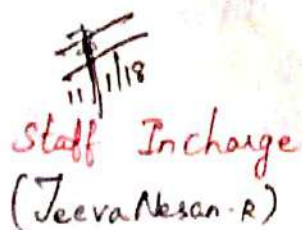 11/1/18
Staff Incharge
(Jeeva Nesan. R)